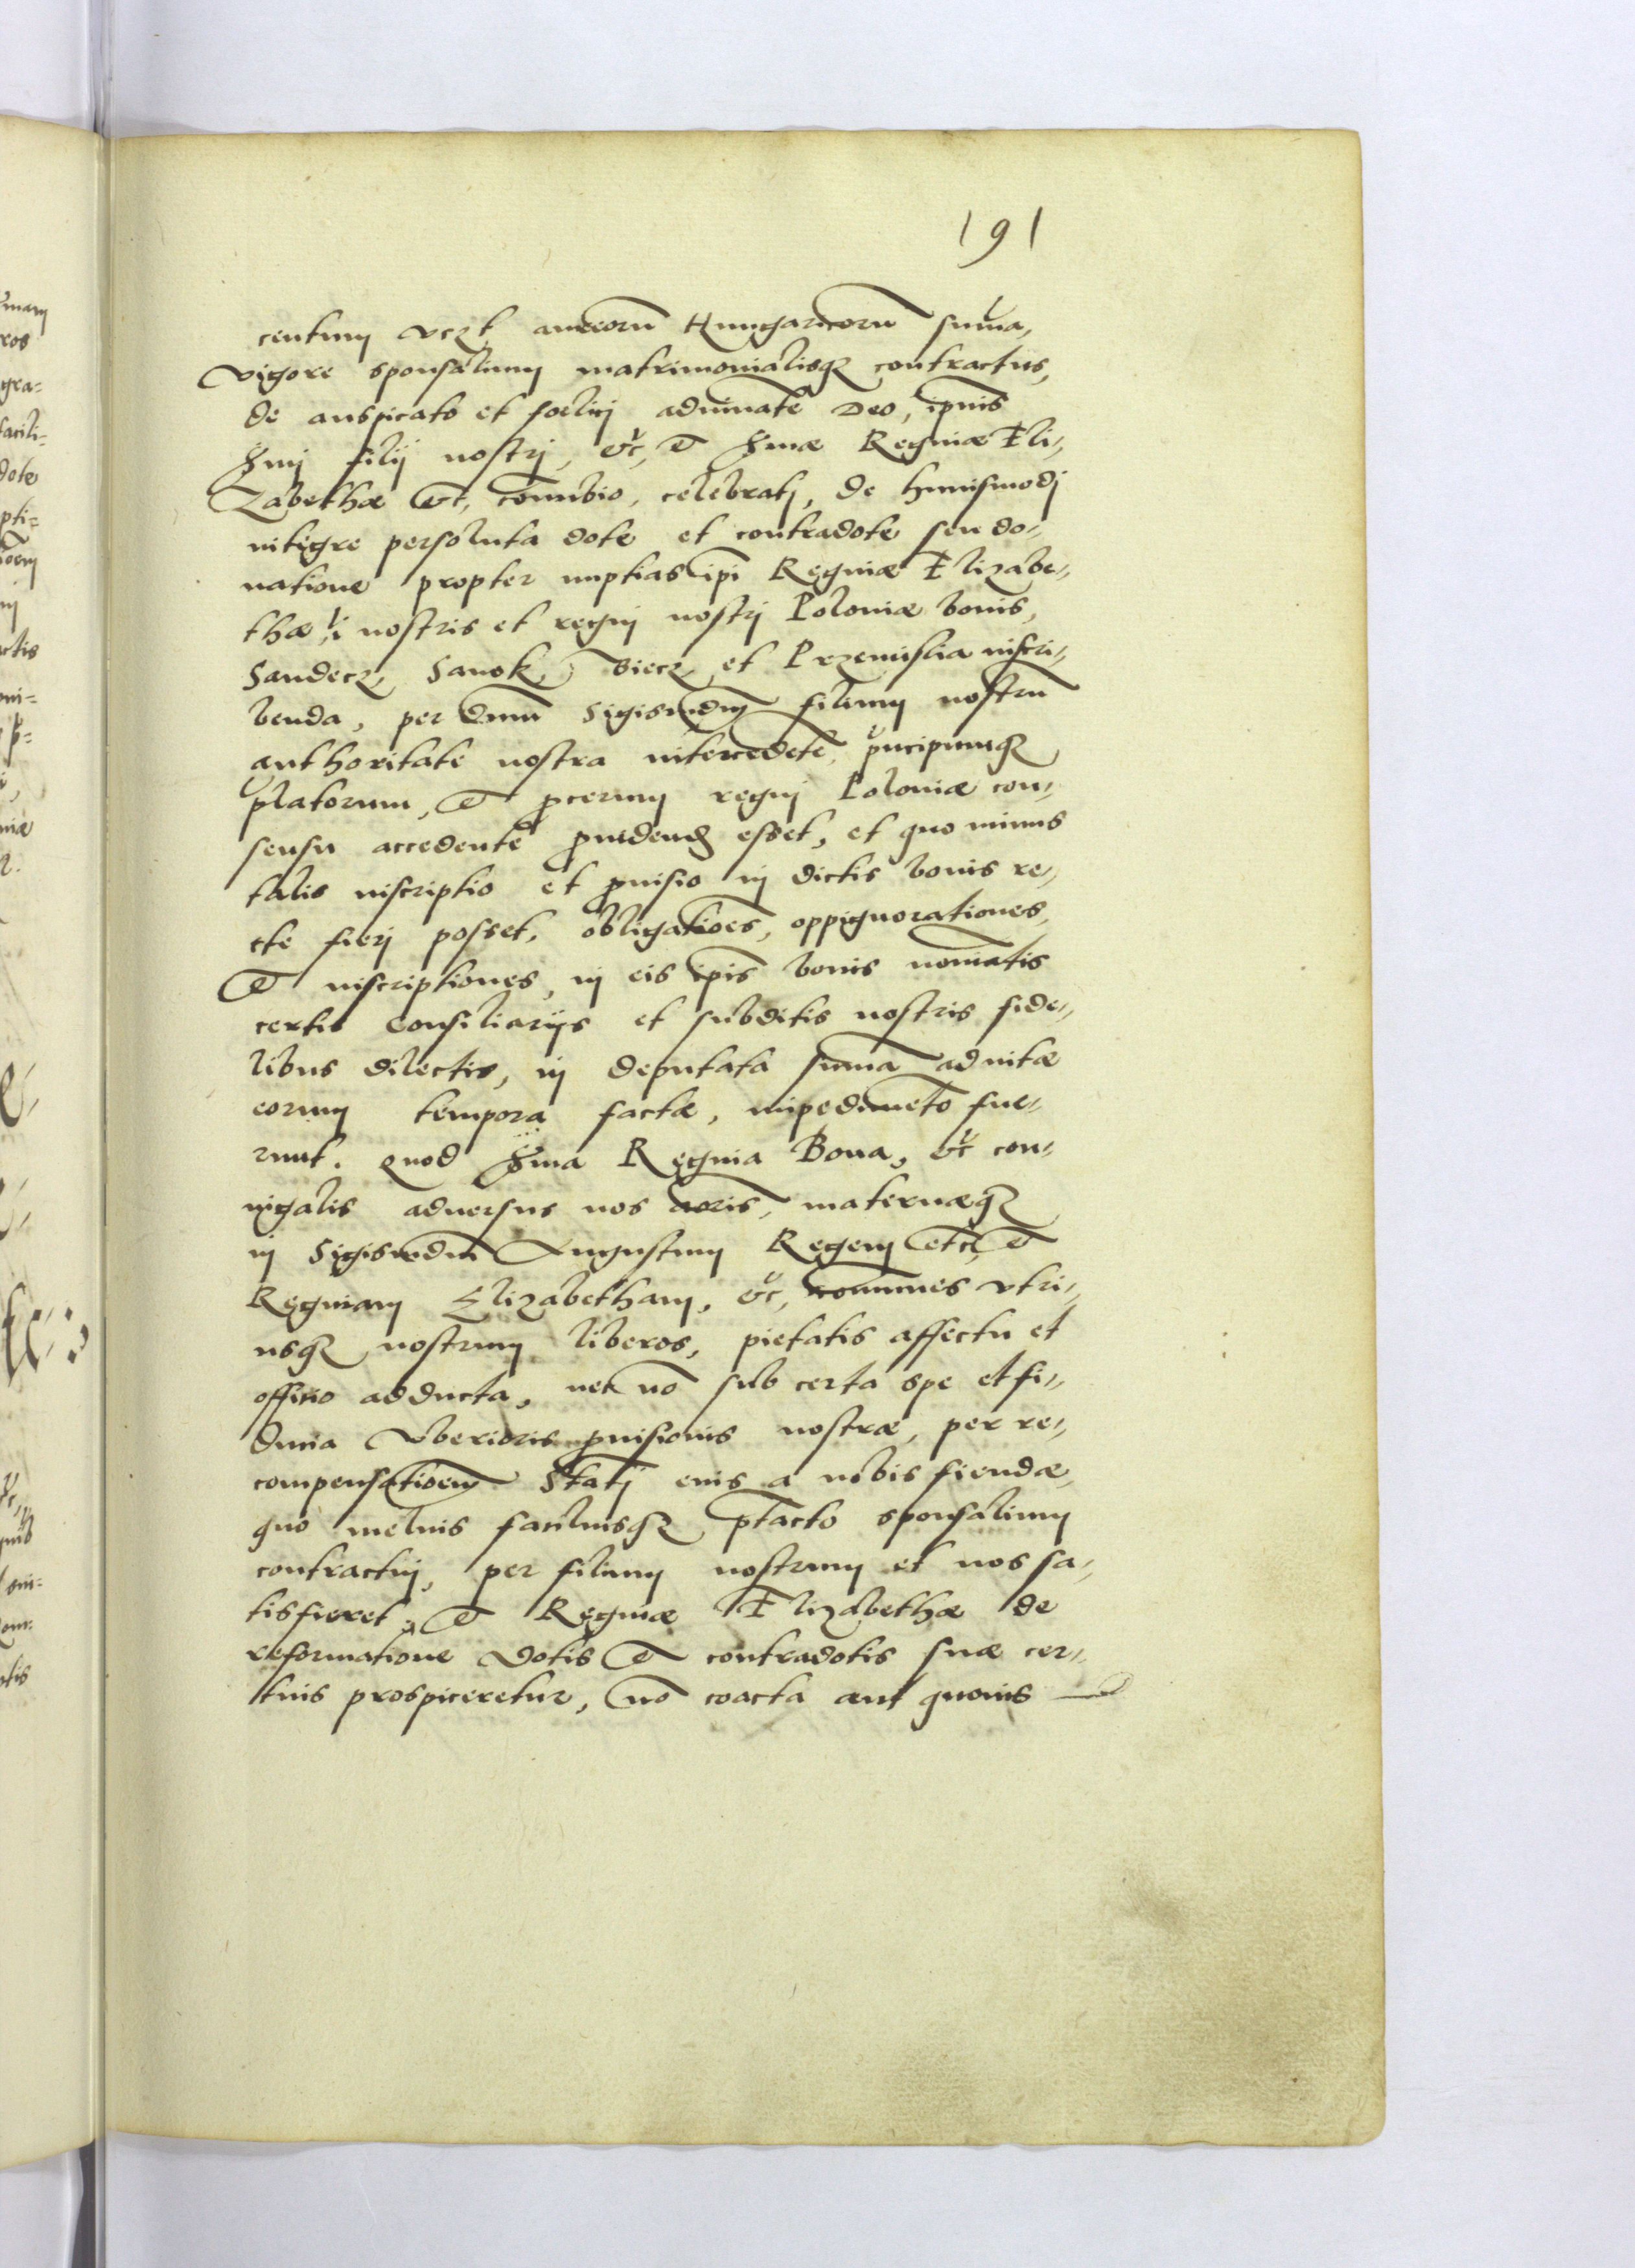 191
centum vczt aureorū Hungaricorū sum̄a,
vigore sponsalium matrimonialisq; contractus,
de auspicato et foelici adiuuāte Deo, ipsius
Smi filij nostrj, &c, et Smæ Reginæ Eli,,
zabethæ &c, connubio, celebratj, de huiusmodj
integre persoluta dote et contradote seu do,,
natione propter nuptias ipi Reginæ Elizabe,,
thæ, ī nostris et regnj nostrj Poloniæ bonis,
Sandecz, Sanok, Biecz, et Przemislia inscri,,
benda, per Dnm̄ Sigismūdum filium nostrū
authoritate nostra intercedēte, pncipumq;
platorum, et pcerum regnj Poloniæ con,,
sensu accedente puidendū esset, et quo minus
talis inscriptio et puisio in dictis bonis re,,
cte fierj posset, obligatiões, oppignorationes,
et inscriptiones, in eis ip̄is bonis nomiātis
certis consiliarijs et subditis nostris fide,,
libus dilectis, in deputata sum̄a ad vitæ
eorum tempora factæ, impedimēto fue,,
runt. Quod Sma Regina Bona, &c con,,
iugalis aduersus nos amoris, maternæq;
in Sigismūdum Augustum Regem etc, et
Reginam Elizabetham, &c, com̄unes vtri,,
usq; nostrum liberos, pietatis affectu et
officio adducta, nec nō sub certa spe et fi,,
ducia vberioris puisionis nostræ, per re,,
compensatiõem Statj eius a nobis fiendæ,
quo melius faciliusq; ptacto sponsalium
contractuj, per filium nostrum et nos sa,,
tisfieret, et Reginæ Elizabethæ de
reformatione dotis et contradotis suæ cer,,
tius prospiceretur, nō coacta aut quouis